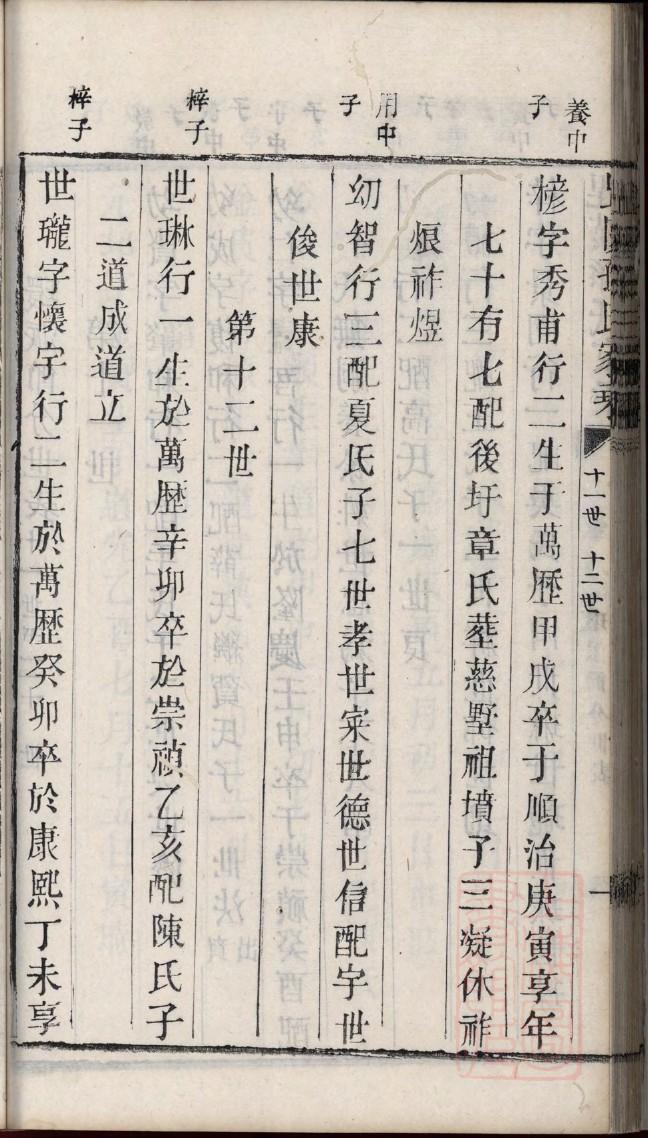 十一世 十二世
養中子
楌字秀甫行二生于萬歷甲戌卒于順治庚寅享年
七十有七配後圩章氏塟慈墅祖墳子三凝休祚
烺祚煜
用中子
幼智行三配夏氏子七世孝世寀世德世信配宇世
俊世康
第十二世
梓子
世琳行一 生於萬歷辛卯卒於崇禎乙亥配陳氏子
二道成道立
梓子
世瓏字懷宇行二生於萬歷癸卯卒於康熙丁未享